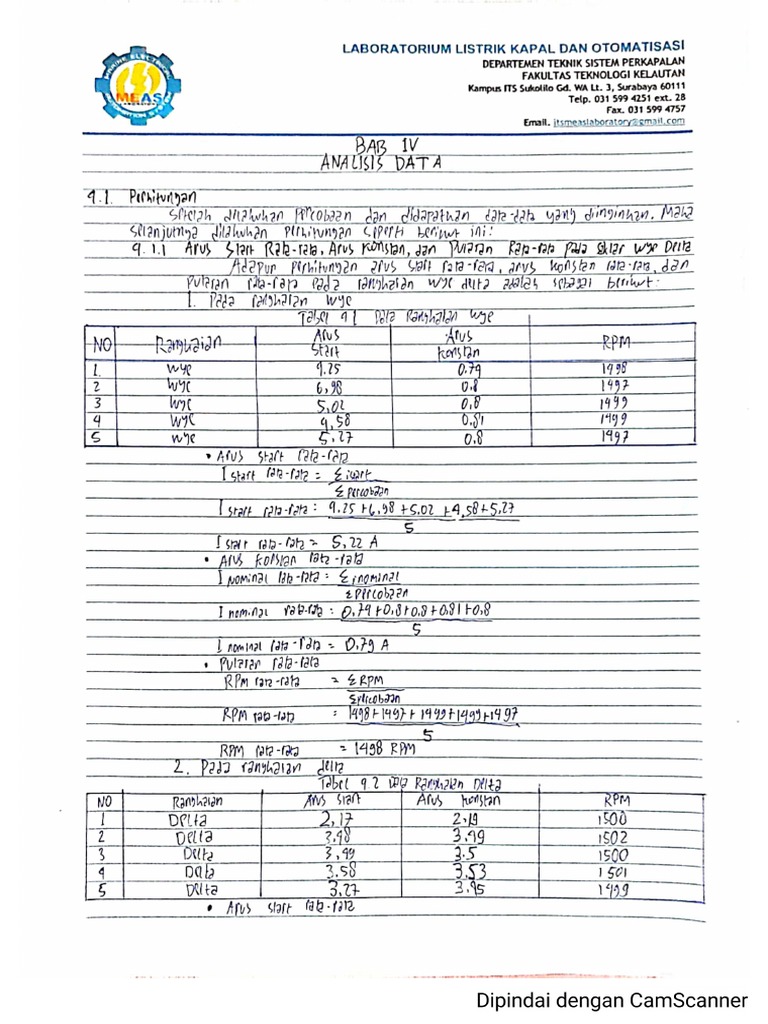 LABORATORIUM LISTRIK KAPAL DAN OTOMATISASI
DEPARTEMEN TEKNIK SISTEM PERKAPALAN
FAKULTAS TEKNOLOGI KELAUTAN
Kampus ITS Sukolilo Gd. WA Lt. 3, Surabaya 60111
Telp. 031 599 4251 ext. 28
Fax. 031 599 4757
Email. itsmeaslaboratory@gmail.com
MEAS
BAB IV
ANALISIS DATA
4.1. Perhitungan
Setelah dilakukan percobaan dan didapatkan data-data yang diinginkan. Maka
selanjutnya dilakukan perhitungan seperti berikut ini:
4.1.1 Arus Start Rata-rata, Arus Konstan, dan Putaran Rata-rata Pada Wye Delta
Adapun perhitungan arus start rata-rata, arus konstan rata-rata, dan
Putaran rata-rata pada rangkaian wye delta adalah sebagai berikut:
1. Pada rangkaian wye
Tabel 4.1 Data Rangkaian wye
NO Rangkaian Arus Start Arus Konstan RPM
1. wye 4.25 0.79 1498
2 wye 6,98 0.8 1497
3 wye 5,02 0.8 1499
4 wye 4,58 0.81 1499
5 wye 5.27 0.8 1497
• Arus start rata-rata
I start rata-rata = Σ istart
Σ percobaan
I start rata-rata : 4.25 + 6,98 + 5,02 + 4,58 + 5,27
5
I start rata-rata = 5,22 A
• Arus konstan rata-rata
I nominal rata-rata : Σ inominal
Σ Percobaan
I nominal rata-rata : 0,79 + 0,8 + 0,8 + 0,81 + 0,8
5
I nominal rata-rata = 0,79 A
• Putaran rata-rata
RPM rata-rata = Σ RPM
Σ percobaan
RPM rata-rata = 1498 + 1497 + 1499 + 1499 + 1497
5
RPM rata-rata = 1498 RPM
2. Pada rangkaian delta
Tabel 4.2 Data Rangkaian Delta
NO Rangkaian Arus start Arus konstan RPM
1 Delta 2,17 2,19 1500
2 Delta 3.48 3.49 1502
3 Delta 3,49 3.5 1500
4 Delta 3.58 3.53 1501
5 Delta 3.27 3.45 1499
• Arus start rata-rata
Dipindai dengan CamScanner